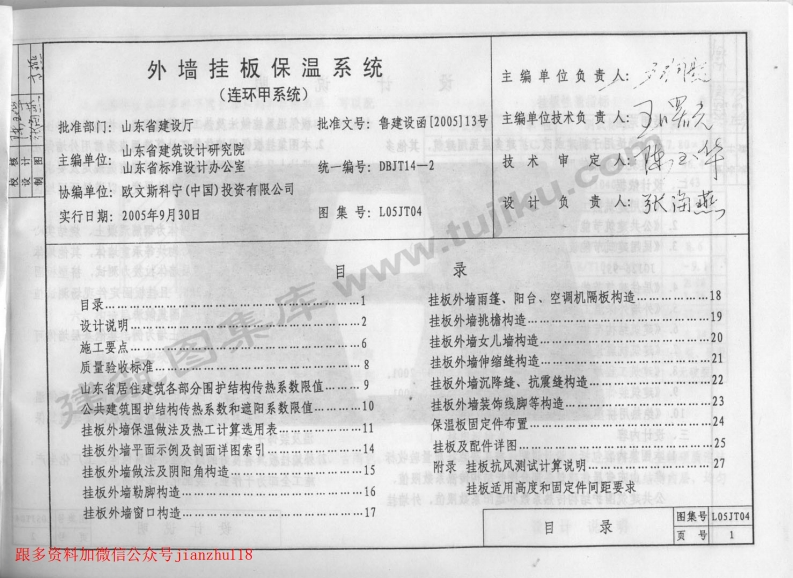 外墙挂板保温系统
(连环甲系统)
批准部门: 山东省建设厅
批准文号: 鲁建设函[2005]13号
主编单位: 山东省建筑设计研究院
山东省标准设计办公室
统一编号: DBJT14—2
协编单位: 欧文斯科宁(中国)投资有限公司
实行日期: 2005年9月30日
图集号: L05JT04
主编单位负责人:
主编单位技术负责人:
技术审定人:
设计负责人: 张海燕
校核
设计
制图
目 录
目录……1
设计说明……2
施工要点……6
质量验收标准……8
山东省居住建筑各部分围护结构传热系数限值……9
公共建筑围护结构传热系数和遮阳系数限值……10
挂板外墙保温做法及热工计算选用表……11
挂板外墙平面示例及剖面详图索引……14
挂板外墙做法及阴阳角构造……15
挂板外墙勒脚构造……16
挂板外墙窗口构造……17
挂板外墙雨蓬、阳台、空调机隔板构造……18
挂板外墙挑檐构造……19
挂板外墙女儿墙构造……20
挂板外墙伸缩缝构造……21
挂板外墙沉降缝、抗震缝构造……22
挂板外墙装饰线脚等构造……23
保温板固定件布置……24
挂板及配件详图……25
附录 挂板抗风测试计算说明……27
挂板适用高度和固定件间距要求
目 录
图集号 L05JT04
页号 1
建筑图集库 www.tujiku.com
跟多资料加微信公众号jianzhu118